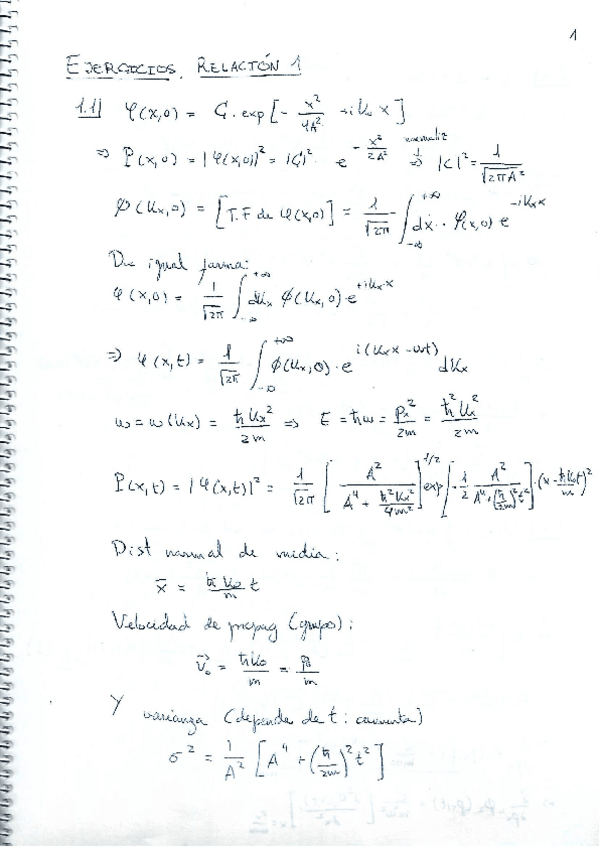 1
EJERCICIOS. RELACIÓN 1
1.1) φ(x,0) = C. exp[- x²/4A² + i k₀ x]
⇒ P(x,0) = |φ(x,0)|² = |C|². e^(-x²/2A²) ⇒ |C|² = 1/√(2πA²)
ϕ(kx,0) = [T.F de φ(x,0)] = 1/√2π ∫_{-∞}^{+∞} dx · φ(x,0) e^(-ikx x)
De igual forma:
φ(x,0) = 1/√2π ∫_{-∞}^{+∞} dkx ϕ(kx,0) · e^(+ikx x)
⇒ φ(x,t) = 1/√2π ∫_{-∞}^{+∞} ϕ(kx,0) · e^(i(kx x - ωt)) dkx
ω = ω(kx) = ħkx²/2m ⇒ E = ħω = px²/2m = ħ²kx²/2m
P(x,t) = |φ(x,t)|² = 1/√2π [A²/(A⁴ + ħ²kx²/4m²)]^(1/2) exp[-1/2 A²/(A⁴+(ħ/2m)²t²)] · (x - ħk₀t/m)²
Dist normal de media:
x̄ = ħk₀/m t
Velocidad de propag (grupo):
v⃗₀ = ħk₀/m = p₀/m
Y varianza (depende de t: aumenta)
σ² = 1/A² [A⁴ + (ħ/2m)² t²]